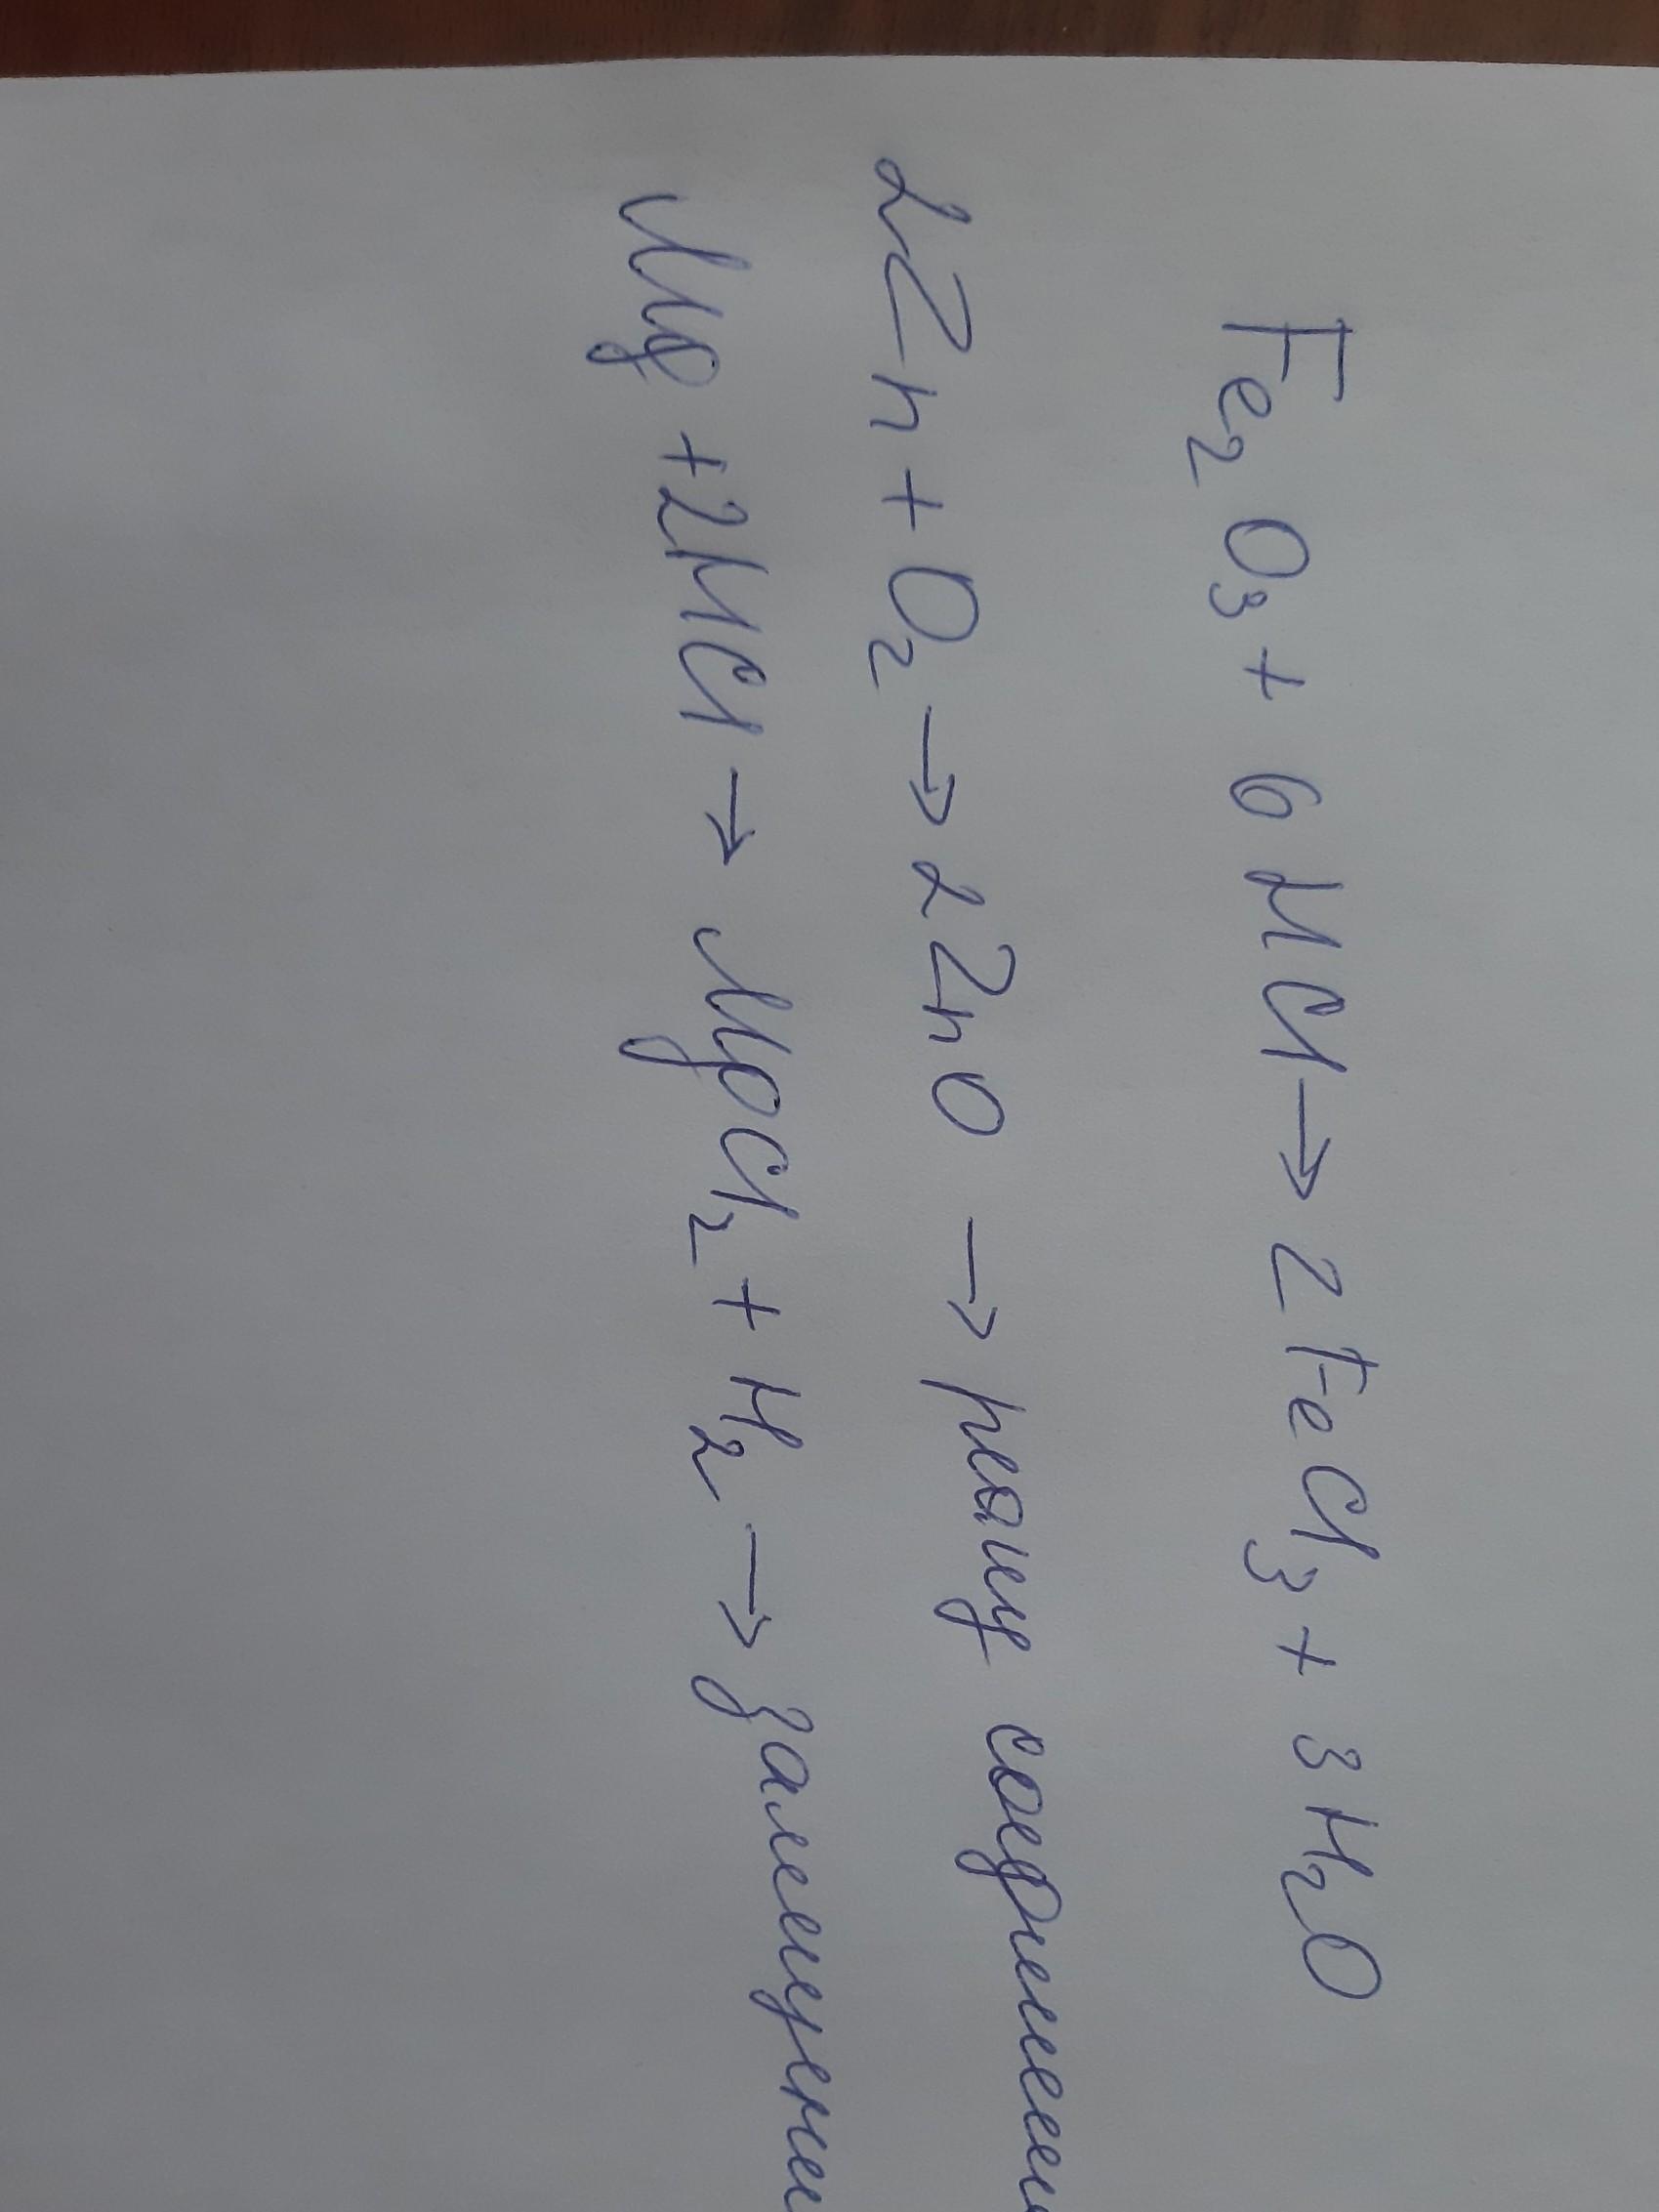 Fe₂O₃ + 6 HCl → 2 FeCl₃ + 3 H₂O
2Zn + O₂ → 2ZnO → реакц соединени
Mg + 2HCl → MgCl₂ + H₂ →